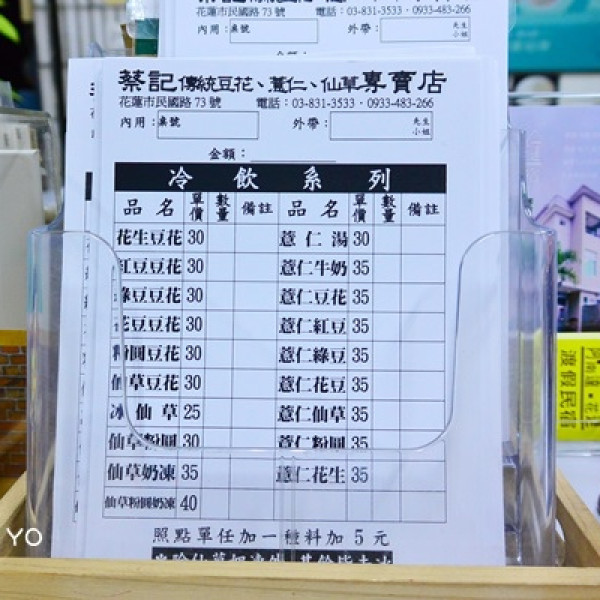 花蓮市民國路 73 號 電話：03-831-3533 · 0933-483-266
內用：桌號 外帶： 先生 小姐
金額：
蔡記傳統豆花、薏仁、仙草專賣店
花蓮市民國路 73 號 電話：03-831-3533 · 0933-483-266
內用：桌號 外帶： 先生 小姐
金額：
冷飲系列
品名 單價 數量 備註 品名 單價 數量 備註
花生豆花 30 薏仁湯 30
紅豆豆花 30 薏仁牛奶 35
綠豆豆花 30 薏仁豆花 35
花豆豆花 30 薏仁紅豆 35
粉圓豆花 30 薏仁綠豆 35
仙草豆花 30 薏仁花豆 35
冰仙草 25 薏仁仙草 35
仙草粉圓 30 薏仁粉圓 35
仙草奶凍 35 薏仁花生 35
仙草粉圓奶凍 40
照點單任加一種料加 5 元
渡假民宿
YO